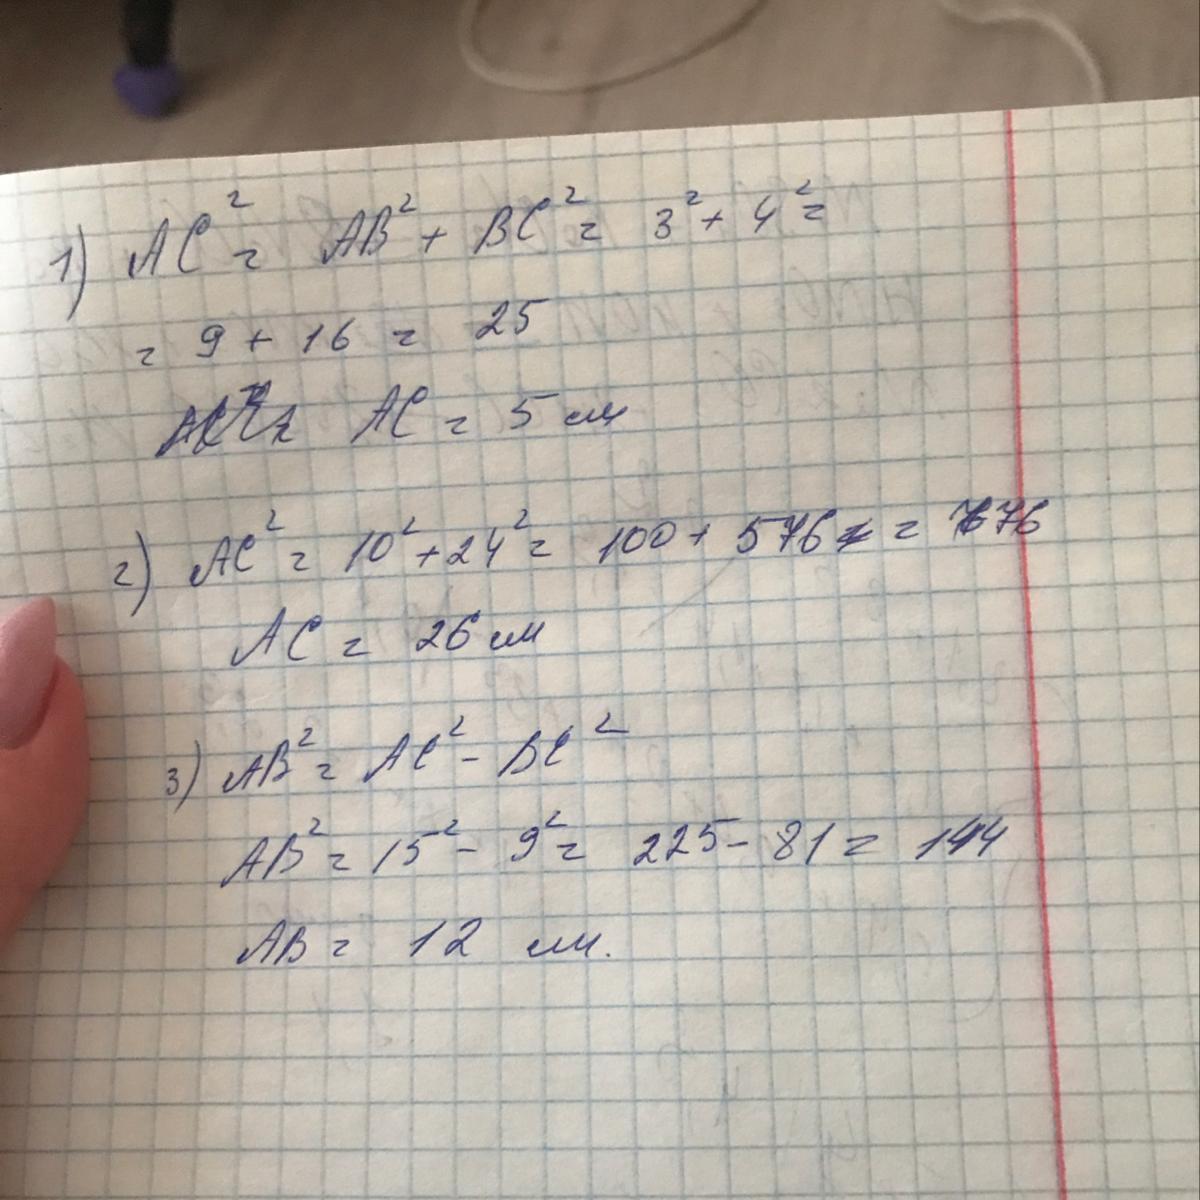 1) AC² = AB² + BC² = 3² + 4² =
= 9 + 16 = 25
AC = 5 см
2) AC² = 10² + 24² = 100 + 576 = 676
AC = 26 см
3) AB² = AC² - BC²
AB² = 15² - 9² = 225 - 81 = 144
AB = 12 см.